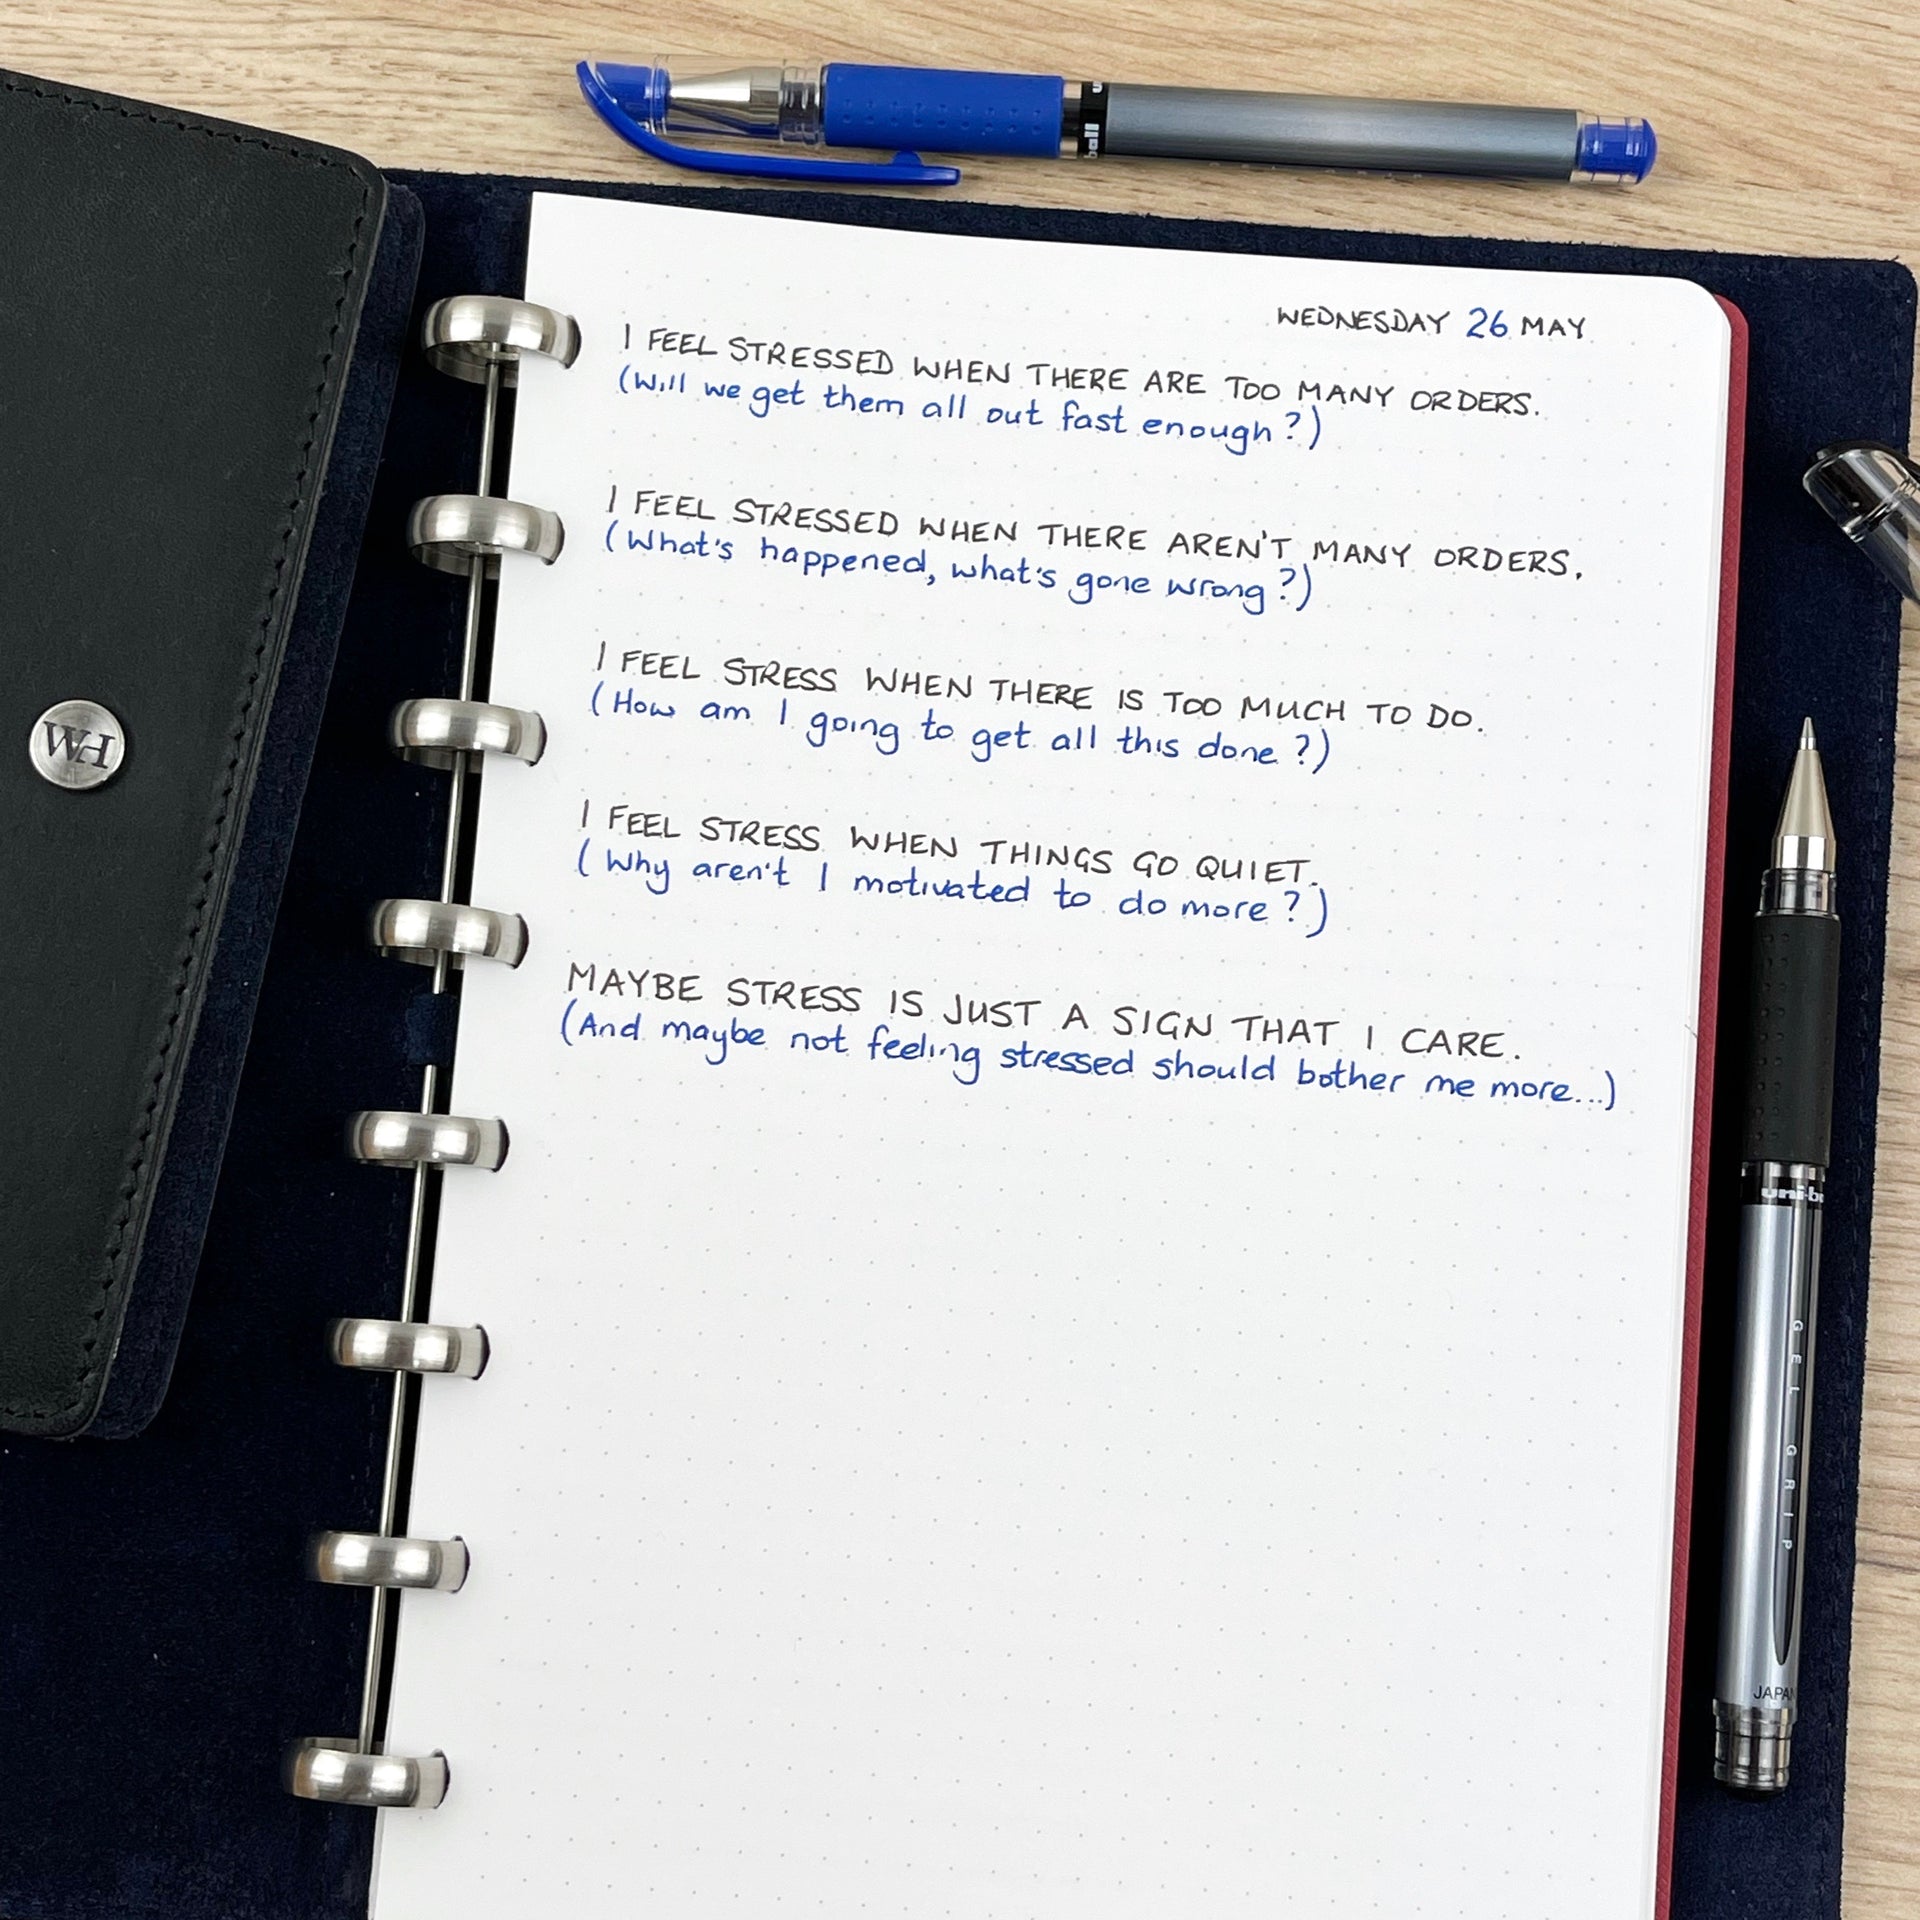 WEDNESDAY 26 MAY
I FEEL STRESSED WHEN THERE ARE TOO MANY ORDERS.
(Will we get them all out fast enough?)
I FEEL STRESSED WHEN THERE AREN'T MANY ORDERS.
(What's happened, what's gone wrong?)
I FEEL STRESS WHEN THERE IS TOO MUCH TO DO.
(How am I going to get all this done?)
I FEEL STRESS WHEN THINGS GO QUIET.
(Why aren't I motivated to do more?)
MAYBE STRESS IS JUST A SIGN THAT I CARE.
(And maybe not feeling stressed should bother me more...)
WH
uni-b
GEL GRIP
JAPAN
ball